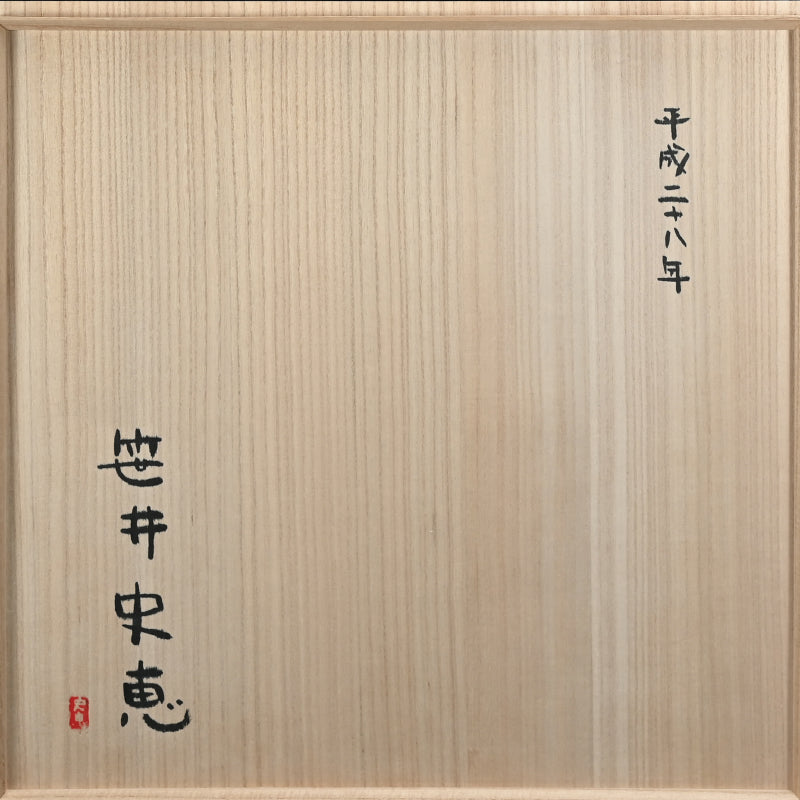 平成二十八年
笹井史恵
史恵